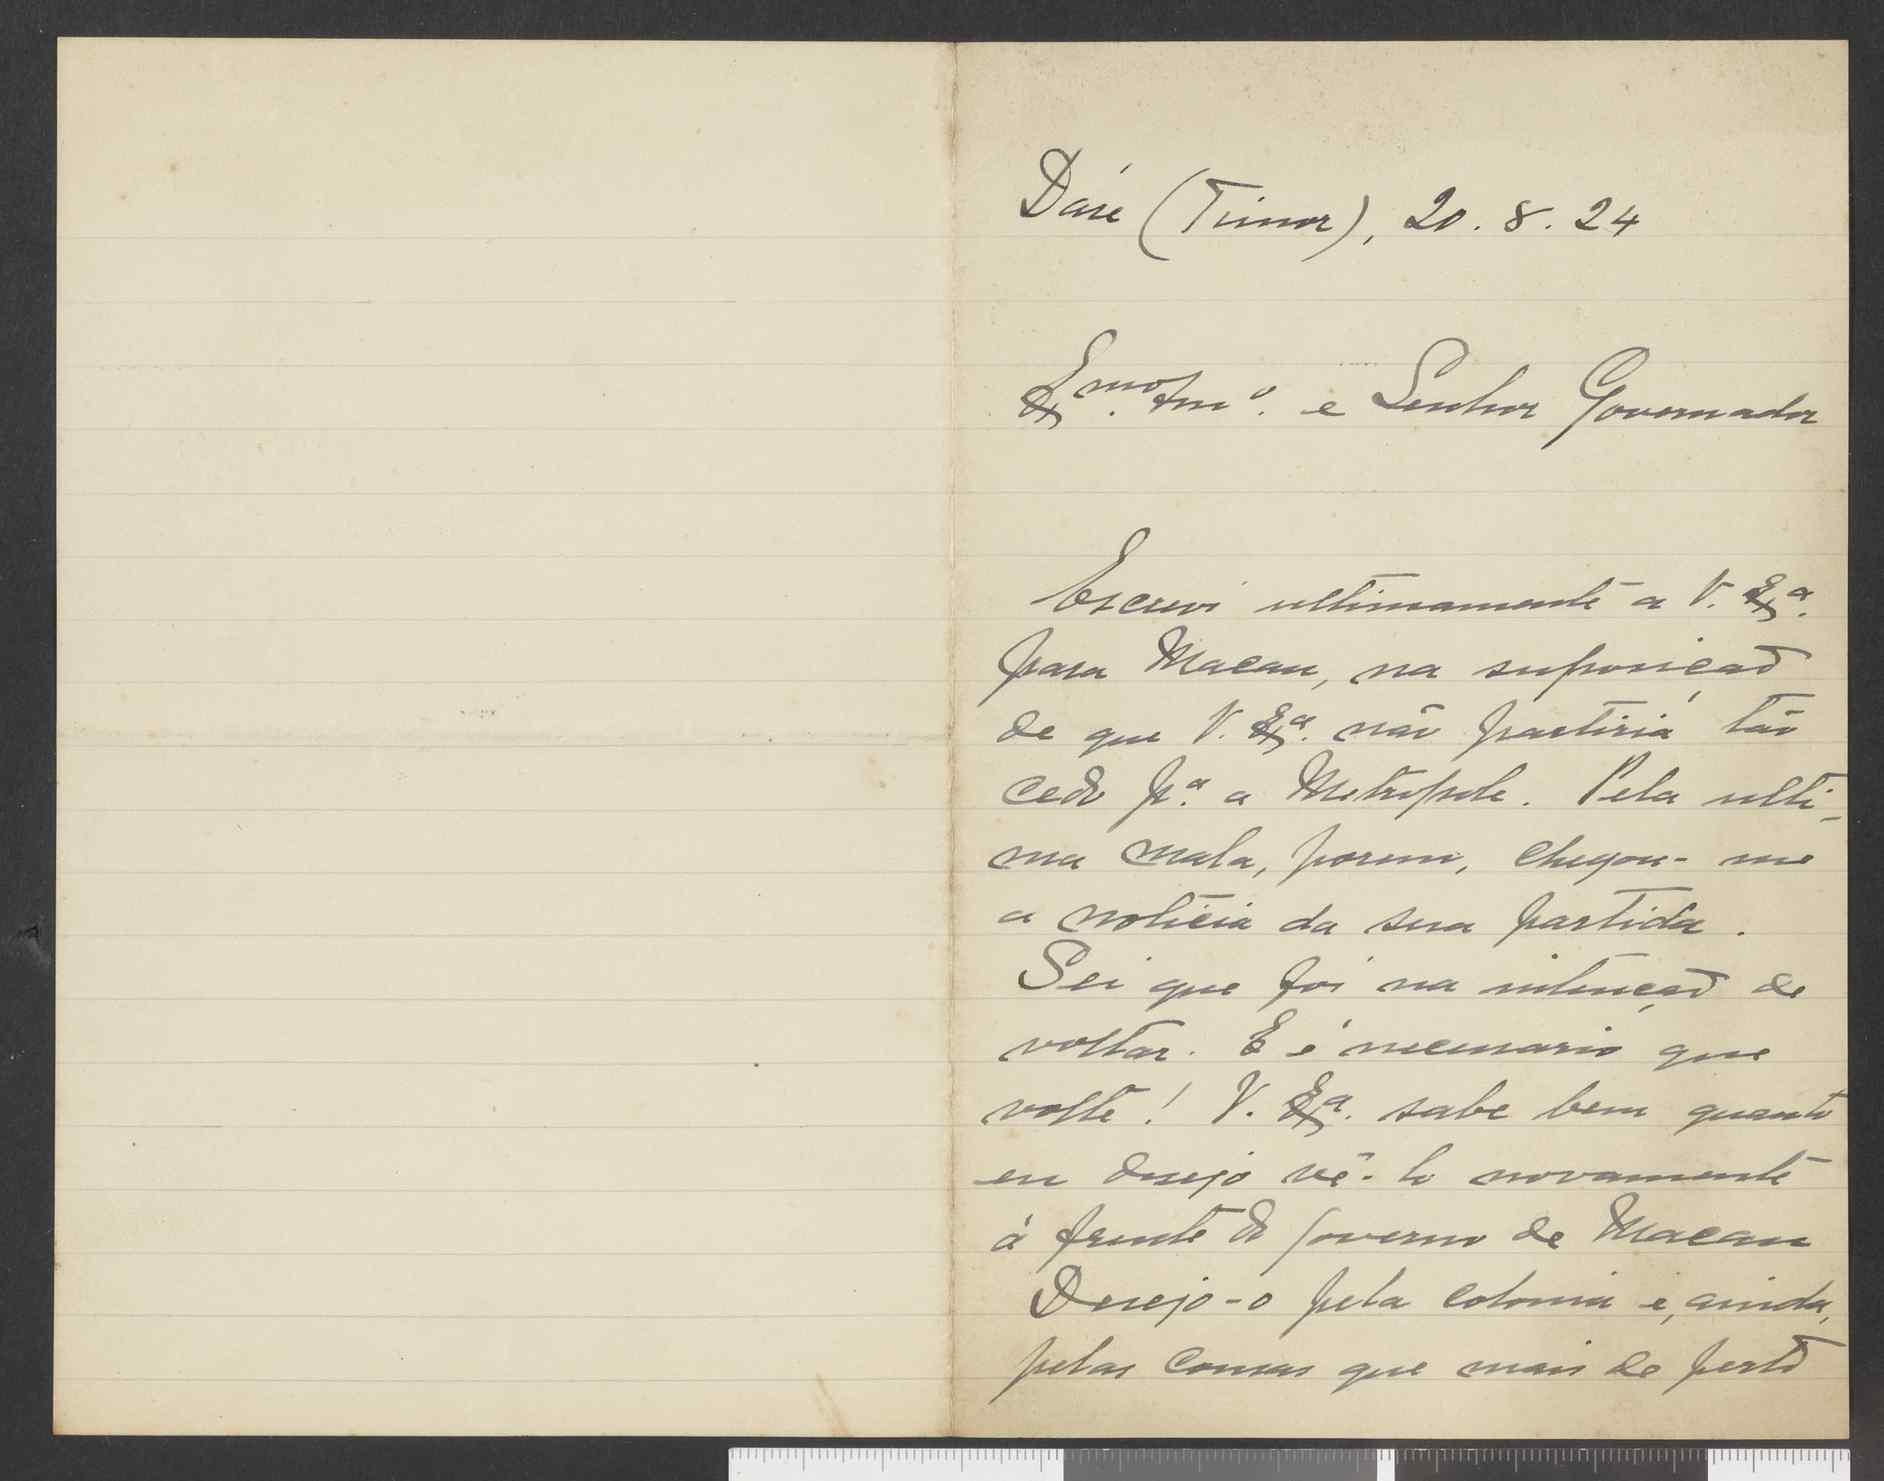 Dáre (Timor), 20.8.24
Exmo. Amo. e Senhor Governador
Escrevi ultimamente a V. Exa.
para Macau, na suposição
de que V. Exa. não partiria tão
cedo pa. a Metropole. Pela ulti-
ma mala, porem, chegou-me
a noticia da sua partida.
Sei que foi na intenção de
voltar. E é necessario que
volte! V. Exa. sabe bem quanto
eu desejo vê-lo novamente
á frente do Governo de Macau
Desejo-o pela colonia e, ainda,
pelas cousas que mais de perto